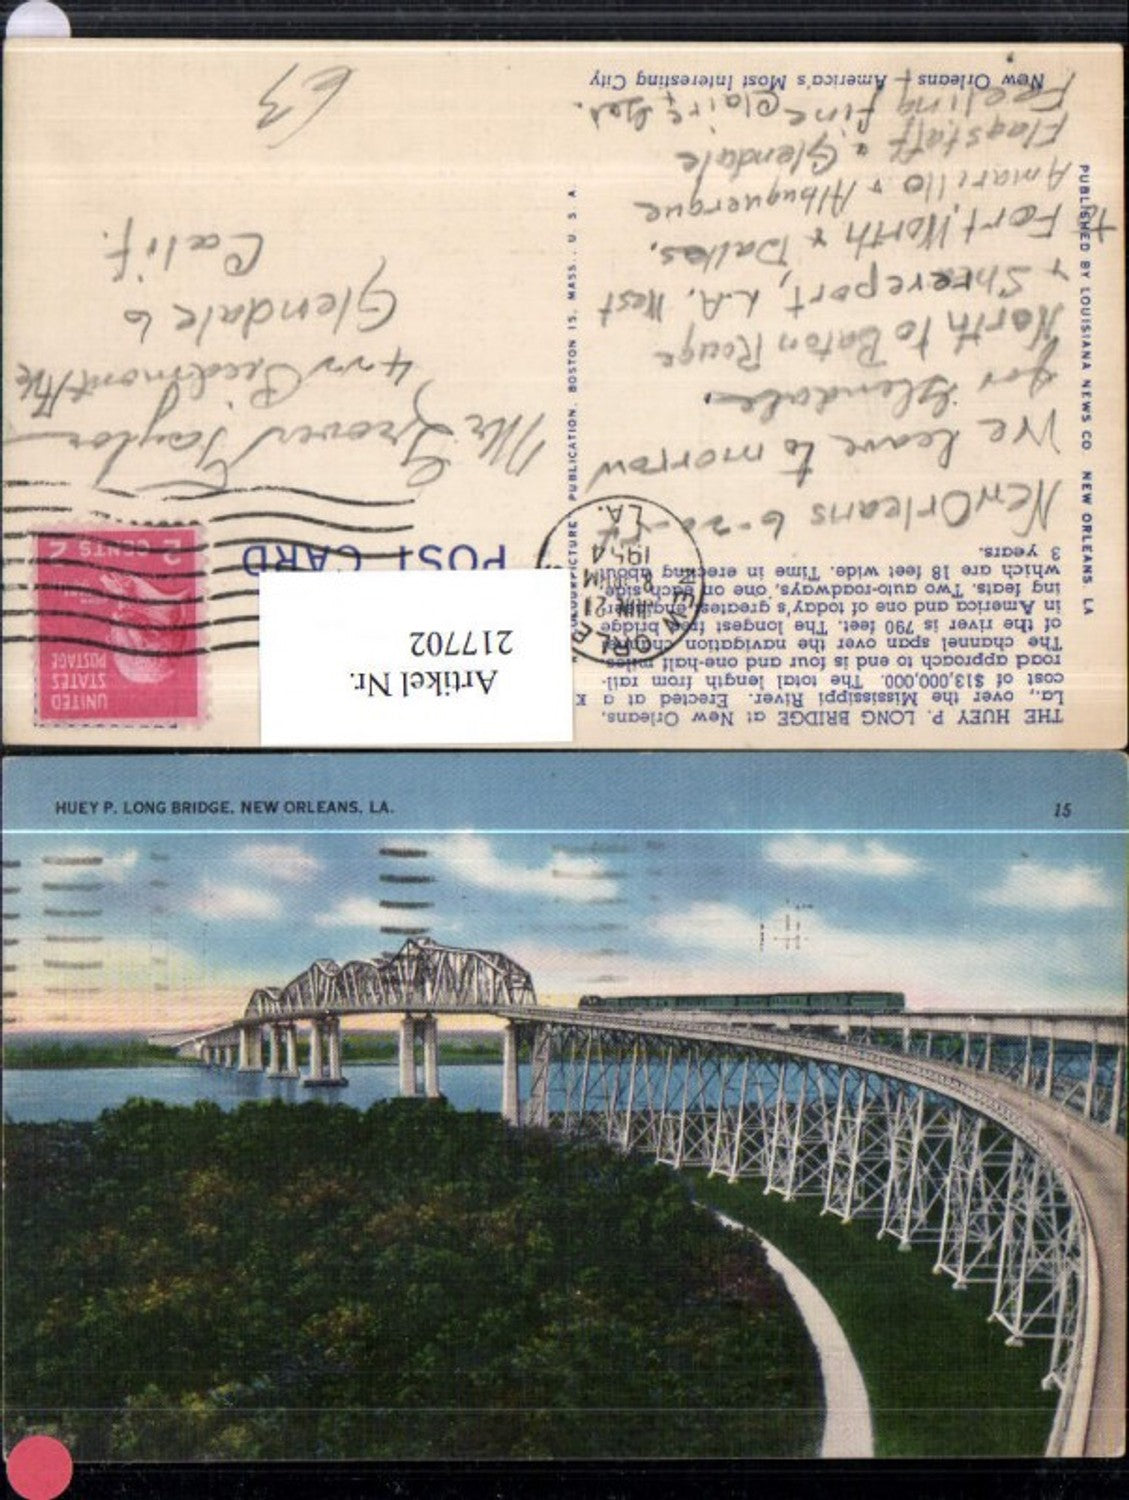 THE HUEY P. LONG BRIDGE at New Orleans,
La., over the Mississippi River. Erected at a
cost of $13,000,000. The total length from rail-
road approach to end is four and one-half miles.
The channel span over the navigation channel
of the river is 790 feet. The longest free bridge
in America and one of today's greatest engineer-
ing feats. Two auto-roadways, one on each side,
which are 18 feet wide. Time in erecting about
3 years.
New Orleans 6-20-54
We leave to morrow
for Glendale.
North to Baton Rouge
& Shreveport, LA. West
to Fort Worth & Dallas.
Amarillo & Albuquerque
Flagstaff & Glendale
Feeling fine Claire
New Orleans - America's Most Interesting City
PUBLISHED BY LOUISIANA NEWS CO NEW ORLEANS LA
PUBLICATION, BOSTON 15, MASS., U. S. A
Artikel Nr.
217702
POST CARD
NEW ORLE
JUN 21
8 PM
1954
LA.
UNITED
STATES
POSTAGE
2 CENTS 2
Mr Grover Taylor
422 Piedmont Ave
Glendale 6
Calif.
63
HUEY P. LONG BRIDGE, NEW ORLEANS, LA.
15